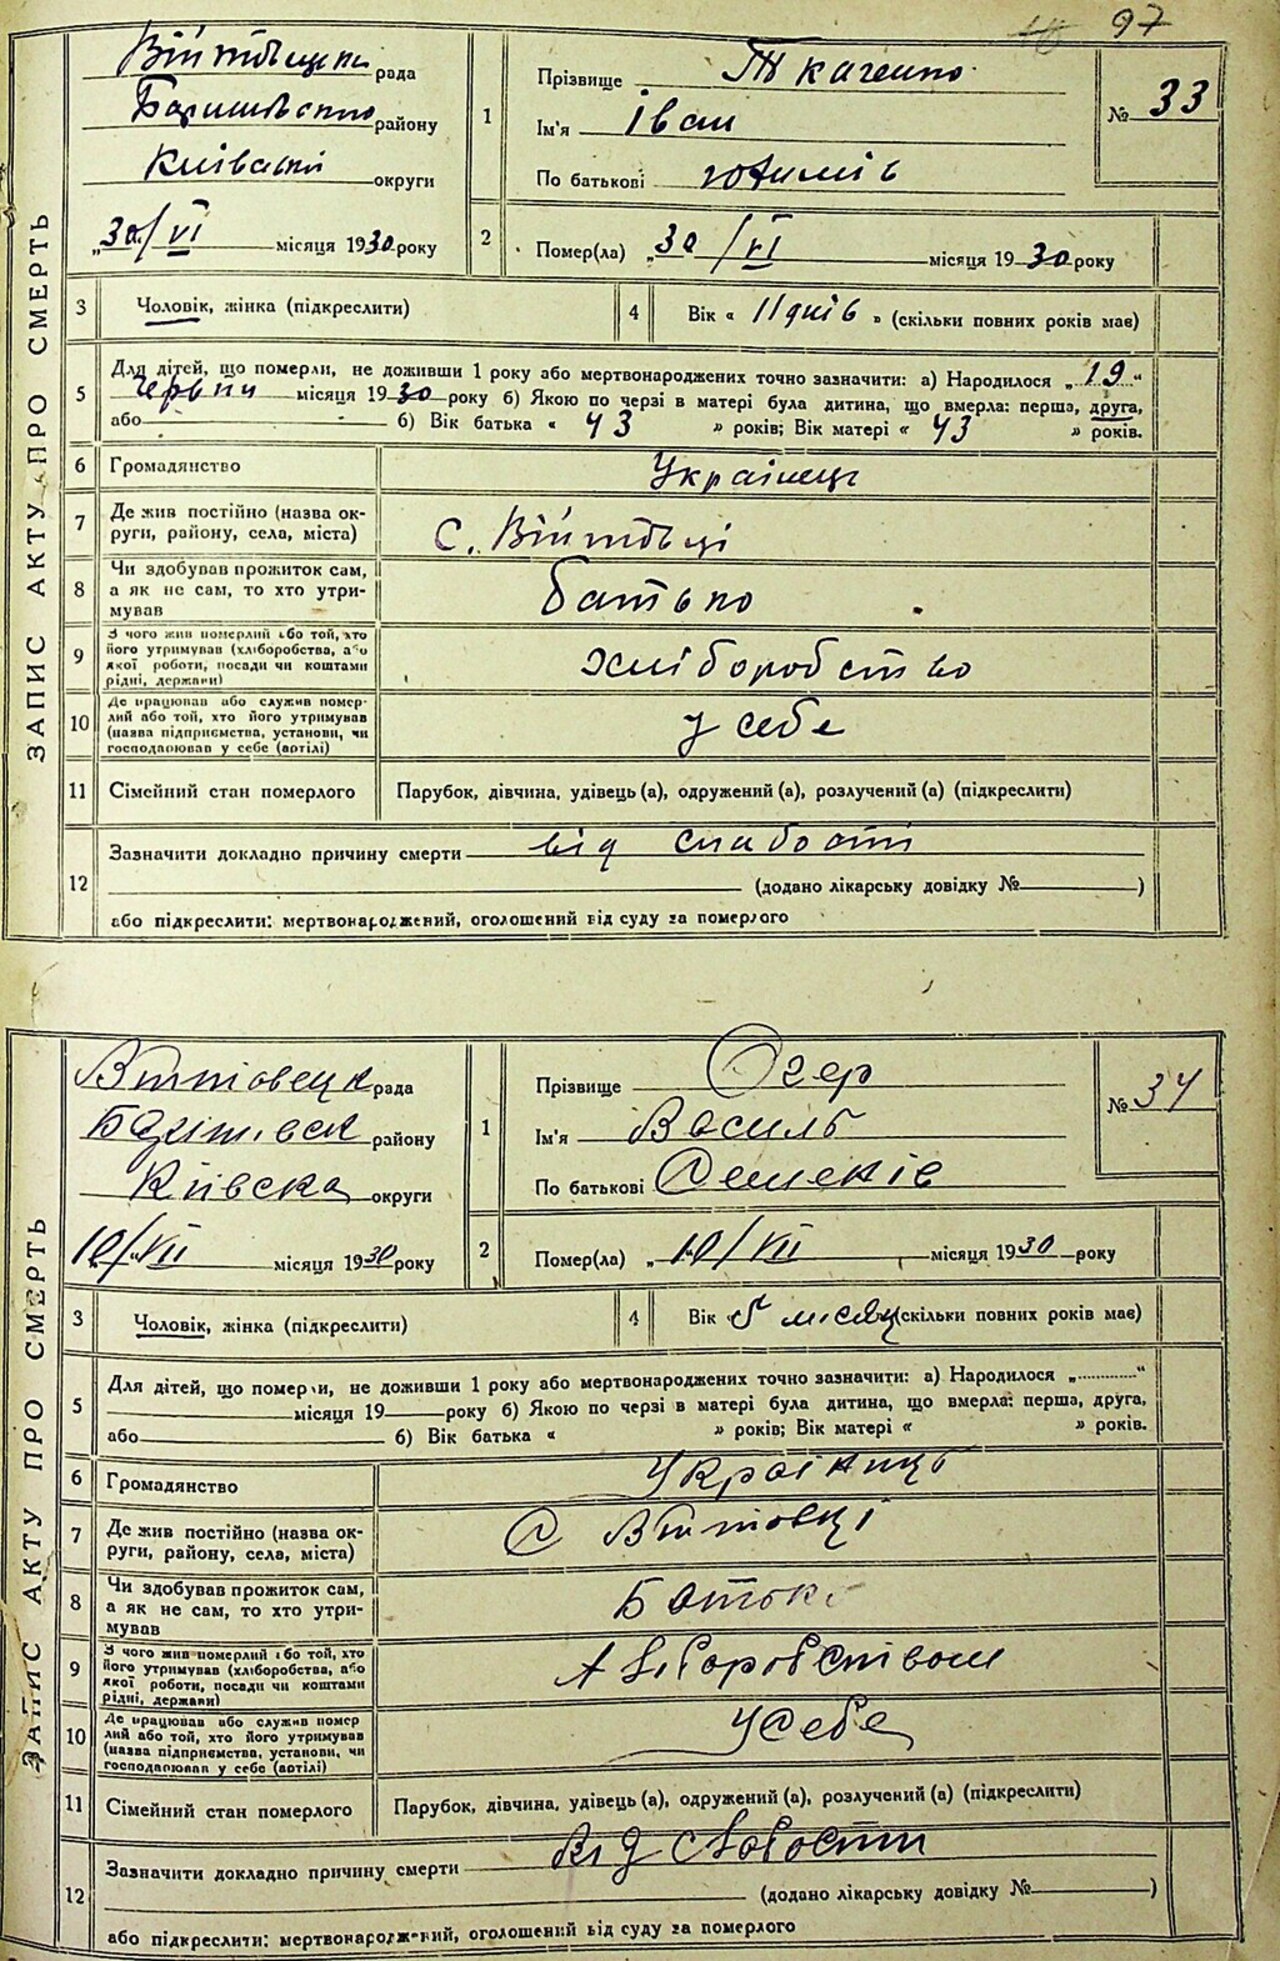 97
ЗАПИС АКТУ ПРО СМЕРТЬ
Війтовцька рада
Баришівського району
Київської округи
„30“/VI місяця 1930 року
1
Прізвище Ткаченко
Ім'я Іван
По батькові Юхимів
№ 33
2
Помер(ла) „30/VI місяця 1930 року
3 Чоловік, жінка (підкреслити)
4 Вік « 11 днів » (скільки повних років має)
5
Для дітей, що померли, не доживши 1 року або мертвонароджених точно зазначити: а) Народилося „19“
червня місяця 1930 року б) Якою по черзі в матері була дитина, що вмерла: перша, друга,
або б) Вік батька « 43 » років; Вік матері « 43 » років.
6 Громадянство Українець
7 Де жив постійно (назва ок-
руги, району, села, міста) с. Війтовці
8 Чи здобував прожиток сам,
а як не сам, то хто утри-
мував батько
9 З чого жив померлий або той, хто
його утримував (хліборобства, або
якої роботи, посади чи коштами
рідні, держави) хліборобство
10 Де працював або служив помер-
лий або той, хто його утримував
(назва підприємства, установи, чи
господарював у себе (артілі) у себе
11 Сімейний стан померлого Парубок, дівчина, удівець (а), одружений (а), розлучений (а) (підкреслити)
12
Зазначити докладно причину смерти від слабости
(додано лікарську довідку № )
або підкреслити: мертвонароджений, оголошений від суду за померлого
ЗАПИС АКТУ ПРО СМЕРТЬ
рада
району
Київска округи
10/„VII місяця 1930 року
1
Прізвище Огер
Ім'я Василь
По батькові
№ 34
2
Помер(ла) „10/VII місяця 1930 року
3 Чоловік, жінка (підкреслити)
4 Вік «5 місяц (скільки повних років має)
5
Для дітей, що померли, не доживши 1 року або мертвонароджених точно зазначити: а) Народилося „ “
місяця 19 року б) Якою по черзі в матері була дитина, що вмерла: перша, друга,
або б) Вік батька « » років; Вік матері « » років.
6 Громадянство Українець
7 Де жив постійно (назва ок-
руги, району, села, міста) С Вітовці
8 Чи здобував прожиток сам,
а як не сам, то хто утри-
мував Батько
9 З чого жив померлий або той, хто
його утримував (хліборобства, або
якої роботи, посади чи коштами
рідні, держави)
10 Де працював або служив помер
лий або той, хто його утримував
(назва підприємства, установи, чи
господарював у себе (артілі) У себе
11 Сімейний стан померлого Парубок, дівчина, удівець (а), одружений (а), розлучений (а) (підкреслити)
12
Зазначити докладно причину смерти Від слабости
(додано лікарську довідку № )
або підкреслити: мертвонароджений, оголошений від суду за померлого